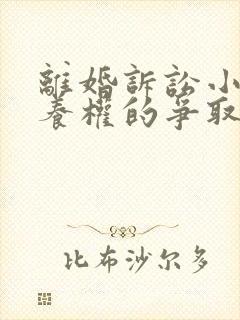 離婚訴訟小
養權的爭取
比布沙尔多